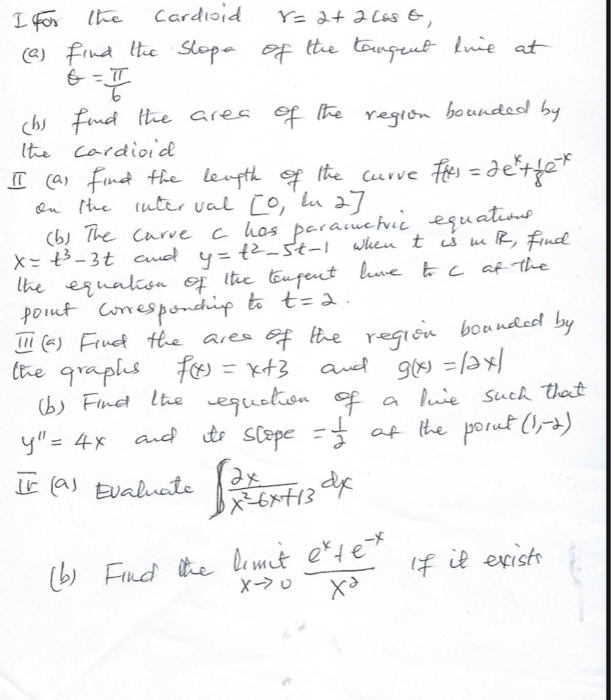 I For the cardioid r = 2 + 2 cos θ,
(a) find the slope of the tangent line at
θ = π/6
(b) find the area of the region bounded by
the cardioid
II (a) find the length of the curve f(x) = 2e^x + 1/8 e^-x
on the interval [0, ln 2]
(b) The curve c has parametric equations
x = t^3 - 3t and y = t^2 - 5t - 1 when t is in R, find
the equation of the tangent line to c at the
point corresponding to t = 2.
III (a) Find the area of the region bounded by
the graphs f(x) = x+3 and g(x) = |2x|
(b) Find the equation of a line such that
y'' = 4x and its slope = 1/2 at the point (1,-2)
IV (a) Evaluate ∫ 2x/(x^2-6x+13) dx
(b) Find the limit x→0 (e^x + e^-x)/x^2 if it exists